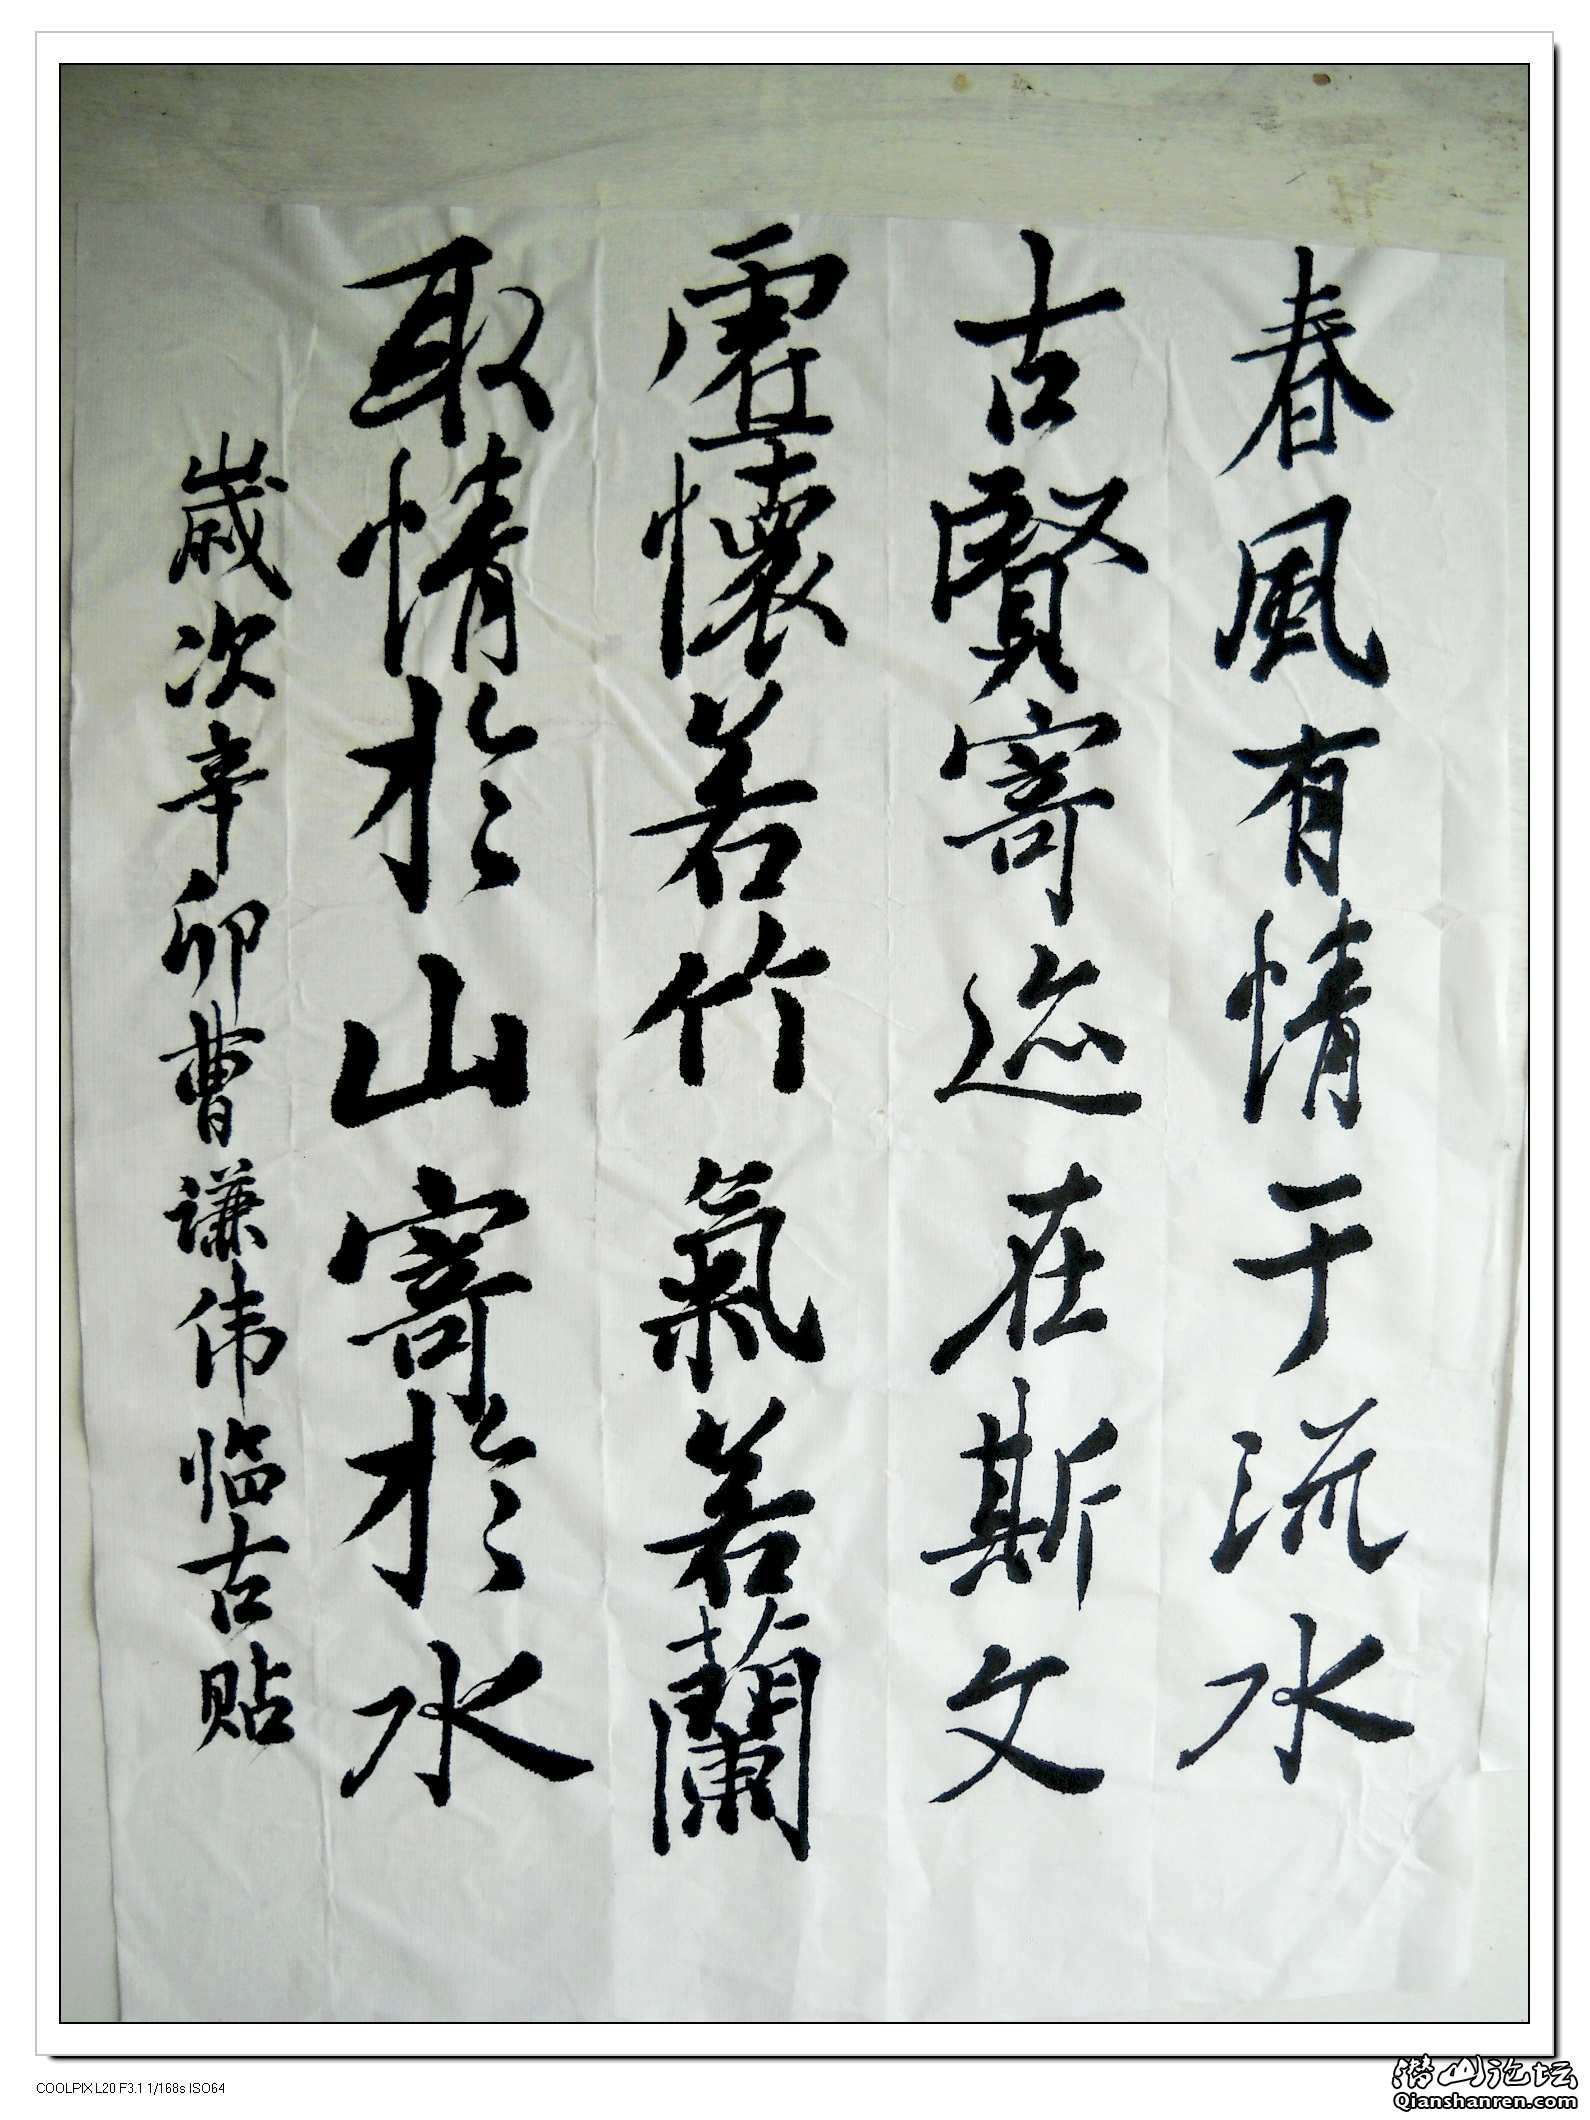 春風有情于流水
古賢寄迹在斯文
虛懷若竹氣若蘭
取情於山寄於水
歲次辛卯曹谦伟临古贴
COOLPIX L20 F3.1 1/168s ISO64
潜山论坛
Qianshanren.com